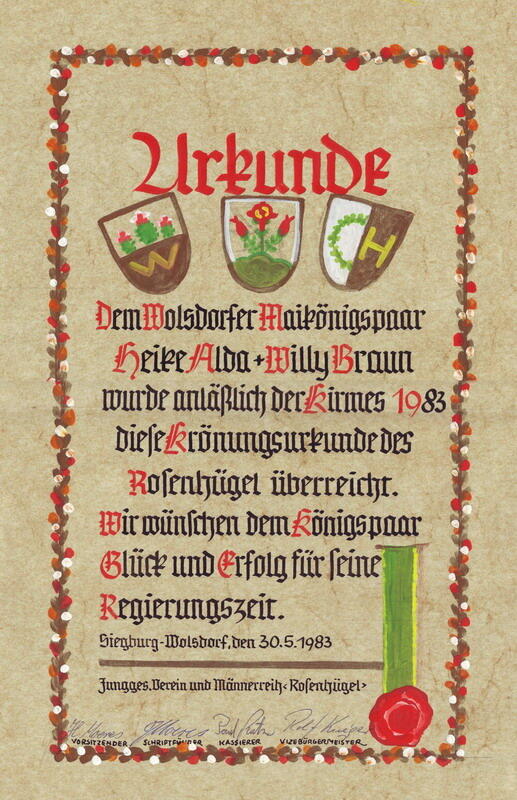 Urkunde
W
C H
Dem Wolsdorfer Maikönigspaar
Heike Alda + Willy Braun
wurde anläßlich der Kirmes 1983
diese Krönungsurkunde des
Rosenhügel überreicht.
Wir wünschen dem Königspaar
Glück und Erfolg für seine
Regierungszeit.
Siegburg-Wolsdorf, den 30.5.1983
Jungges. Verein und Männerreih <Rosenhügel>
VORSITZENDER SCHRIFTFÜHRER KASSIERER VIZEBÜRGERMEISTER